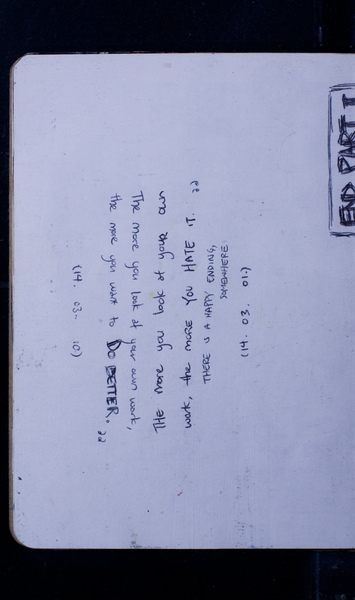 The more you look at your own
work, the more YOU HATE IT. ”
THERE IS A HAPPY ENDING,
SOMEWHERE.
(14. 03. 01)
END PART I
The more you look at your own work,
the more you want to DO BETTER. ”
(14. 03. 10)